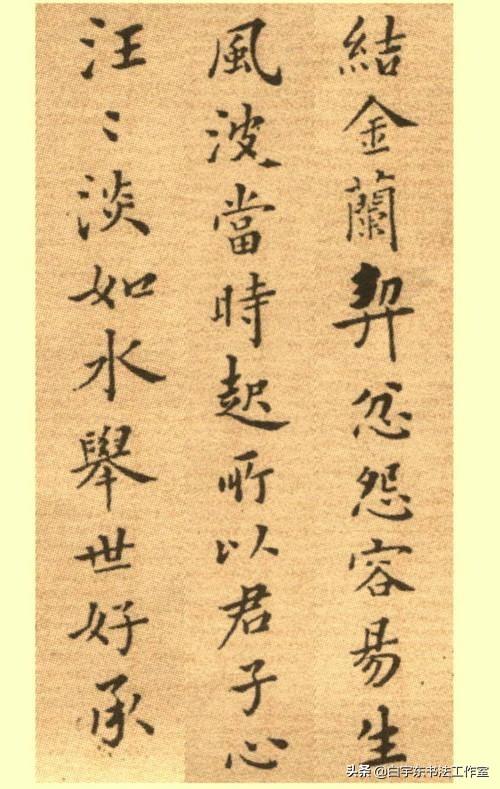 結金蘭契忿怨容易生
風波當時起所以君子心
汪〻淡如水舉世好承
头条 @白宇东书法工作室